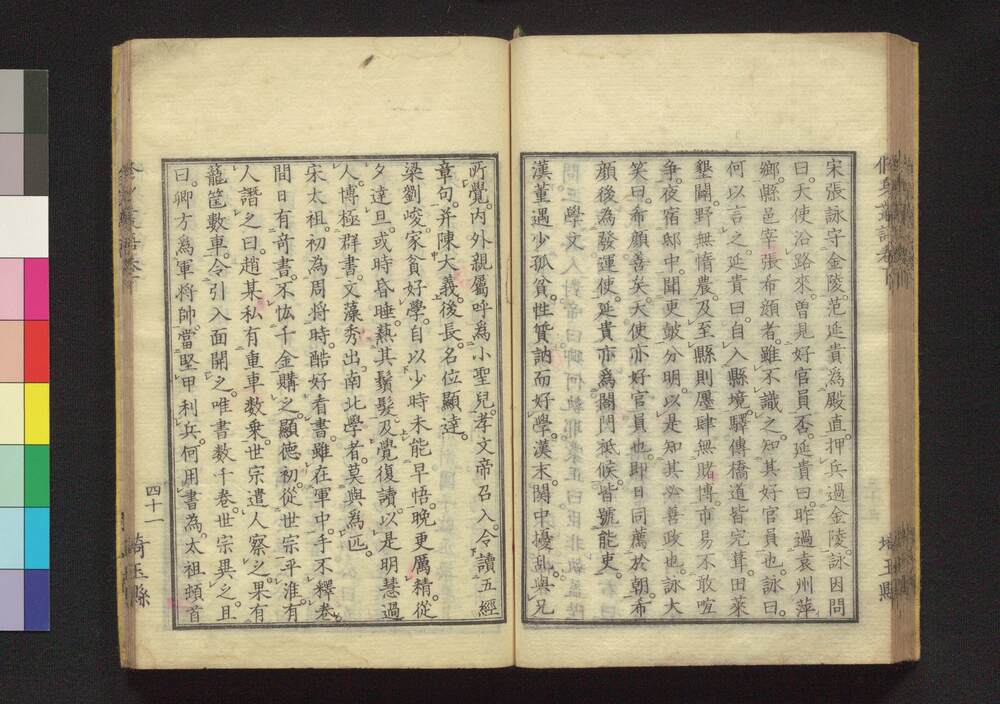 宋張詠守金陵。范延貴爲殿直押兵過金陵。詠因問
曰。天使沿路來。曾見好官員否。延貴曰。昨過袁州萍
鄕縣邑宰張希顔者。雖不識之。知其好官員也。詠曰。
何以言之。延貴曰。自入縣境。驛傳橋道皆完葺。田萊
墾闢。野無惰農。及至縣則廛肆無賭博。市易不敢喧
爭。夜宿邸中。聞更皷分明。以是知其必善政也。詠大
笑曰。希顔善矣。天使亦好官員也。即日同薦於朝。希
顔後為發運使。延貴亦爲閤門祗候。皆號能吏。
漢董遇少孤貧。性質訥而好學。漢末關中擾亂。與兄
所覺。內外親屬呼爲小聖兒。孝文帝召入。令讀五經
章句。并陳大義。後長。名位顯達。
梁劉峻。家貧好學。自以少時未能早悟。晚更厲精。從
夕達旦。或時昏睡。爇其鬚髮。及覺復讀。以是明慧過
人。博極群書。文藻秀出。南北學者。莫與爲匹。
宋太祖。初為周將時。酷好看書。雖在軍中。手不釋卷。
聞日有奇書。不恡千金購之。顯德初。從世宗平淮。有
人譖之曰。趙某私有重車數乗。世宗遣人察之。果有
籠筐數車。令引入面開之。唯書数千卷。世宗異之。且
曰。卿方爲軍將帥。當堅甲利兵。何用書為。太祖頓首
四十一
埼玉縣